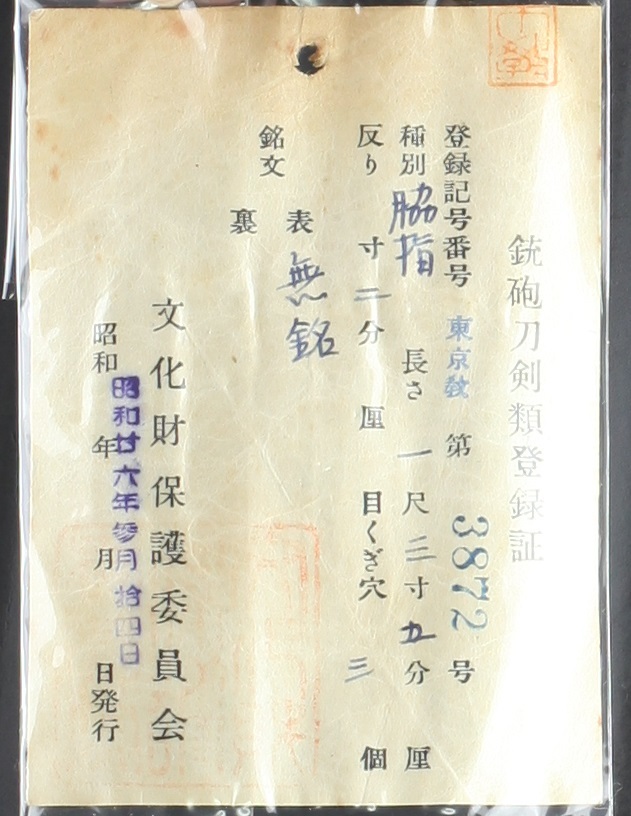 銃砲刀剣類登録証
登録記号番号 東京教 第 3872 号
種別 脇指 長さ 一尺三寸五分 厘
反り 寸二分 厘 目くぎ穴 三 個
銘文 表 無銘
裏
文化財保護委員会
昭和 年 月 日発行
昭和廿六年参月拾四日